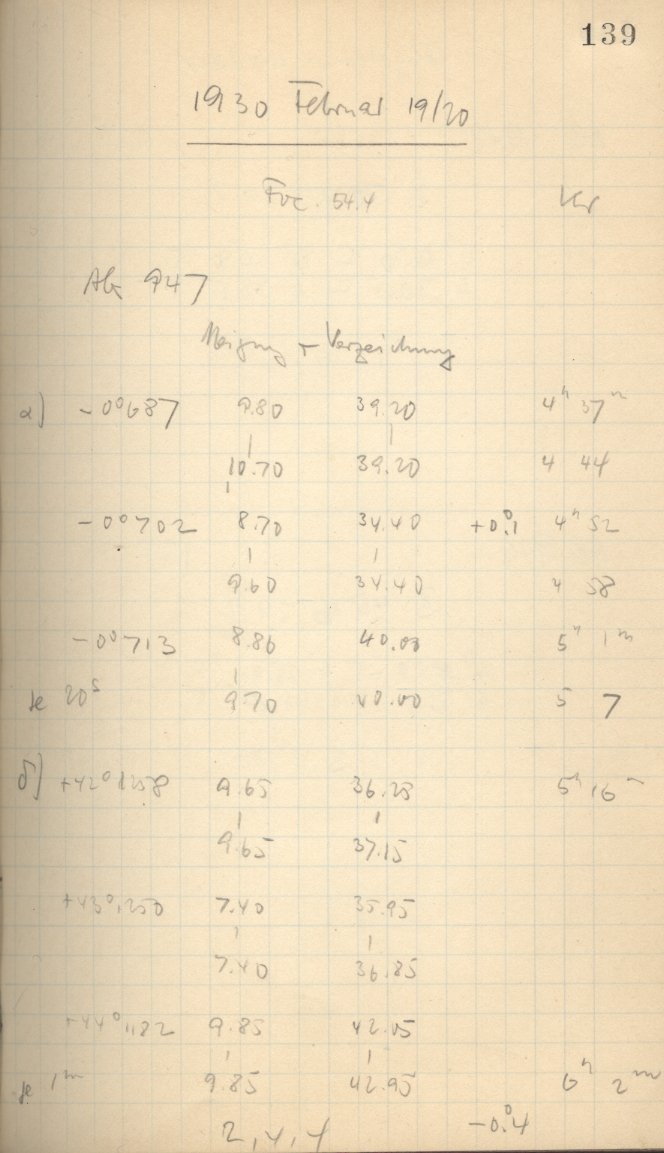 139
1930 Februar 19/20
Foc. 54.4
AG 947
Neigung + Verzeichnung
α) -0°687 9.80 39.20 4h 37m
10.70 39.20 4 44
-0°702 8.70 34.40 +0.°1 4h 52
9.60 34.40 4 58
-0°713 8.80 40.00 5h 1m
je 20s 9.70 40.00 5 7
δ) +42°1258 9.65 36.25 5h 16m
9.65 37.15
+43°1250 7.40 35.95
7.40 36.85
+44°1182 9.85 42.05
je 1m 9.85 42.95 6h 2m
2, 4, 4 -0.°4